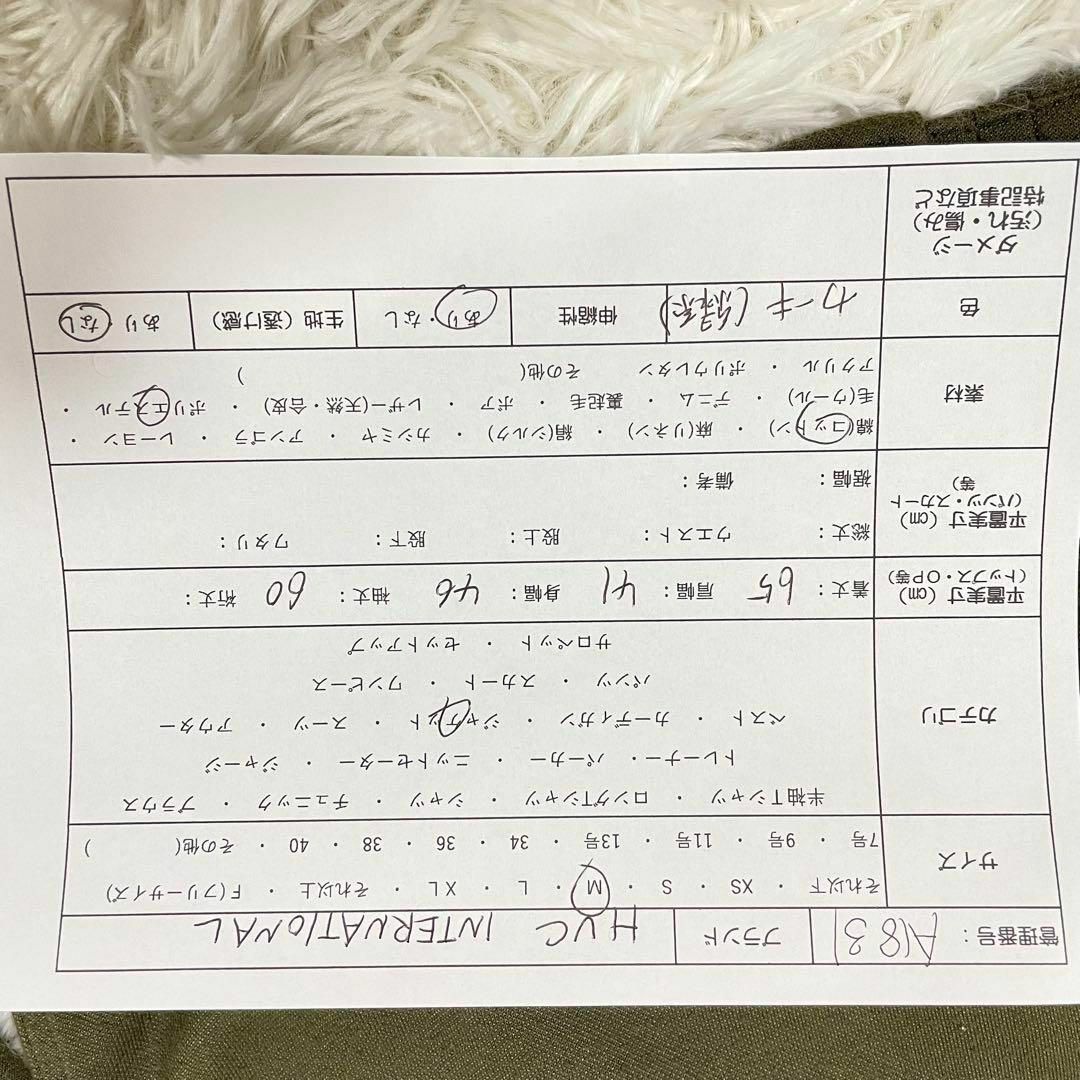 管理番号： A183 ブランド HVC INTERNATIONAL
サイズ
それ以下 ・ XS ・ S ・ M ・ L ・ XL ・ それ以上 ・ F(フリーサイズ)
7号 ・ 9号 ・ 11号 ・ 13号 ・ 34 ・ 36 ・ 38 ・ 40 ・ その他( )
カテゴリ
半袖Tシャツ ・ ロングTシャツ ・ シャツ ・ チュニック ・ ブラウス
トレーナー ・ パーカー ・ ニットセーター ・ ジャージ
ベスト ・ カーディガン ・ ジャケット ・ スーツ ・ アウター
パンツ ・ スカート ・ ワンピース
サロペット ・ セットアップ
平置実寸（cm）
（トップス・OP等）
着丈： 65 肩幅： 41 身幅： 46 袖丈： 60 裄丈：
平置実寸（cm）
（パンツ・スカート
等）
総丈： ウエスト： 股上： 股下： ワタリ：
裾幅： 備考：
素材
綿(コットン) ・ 麻(リネン) ・ 絹(シルク) ・ カシミヤ ・ アンゴラ ・ レーヨン ・
毛(ウール) ・ デニム ・ 裏起毛 ・ ボア ・ レザー(天然・合皮) ・ ポリエステル ・
アクリル ・ ポリウレタン その他( )
色 カーキ(緑系) 伸縮性 あり・なし 生地（透け感） あり・なし
ダメージ
（汚れ・傷み）
特記事項など